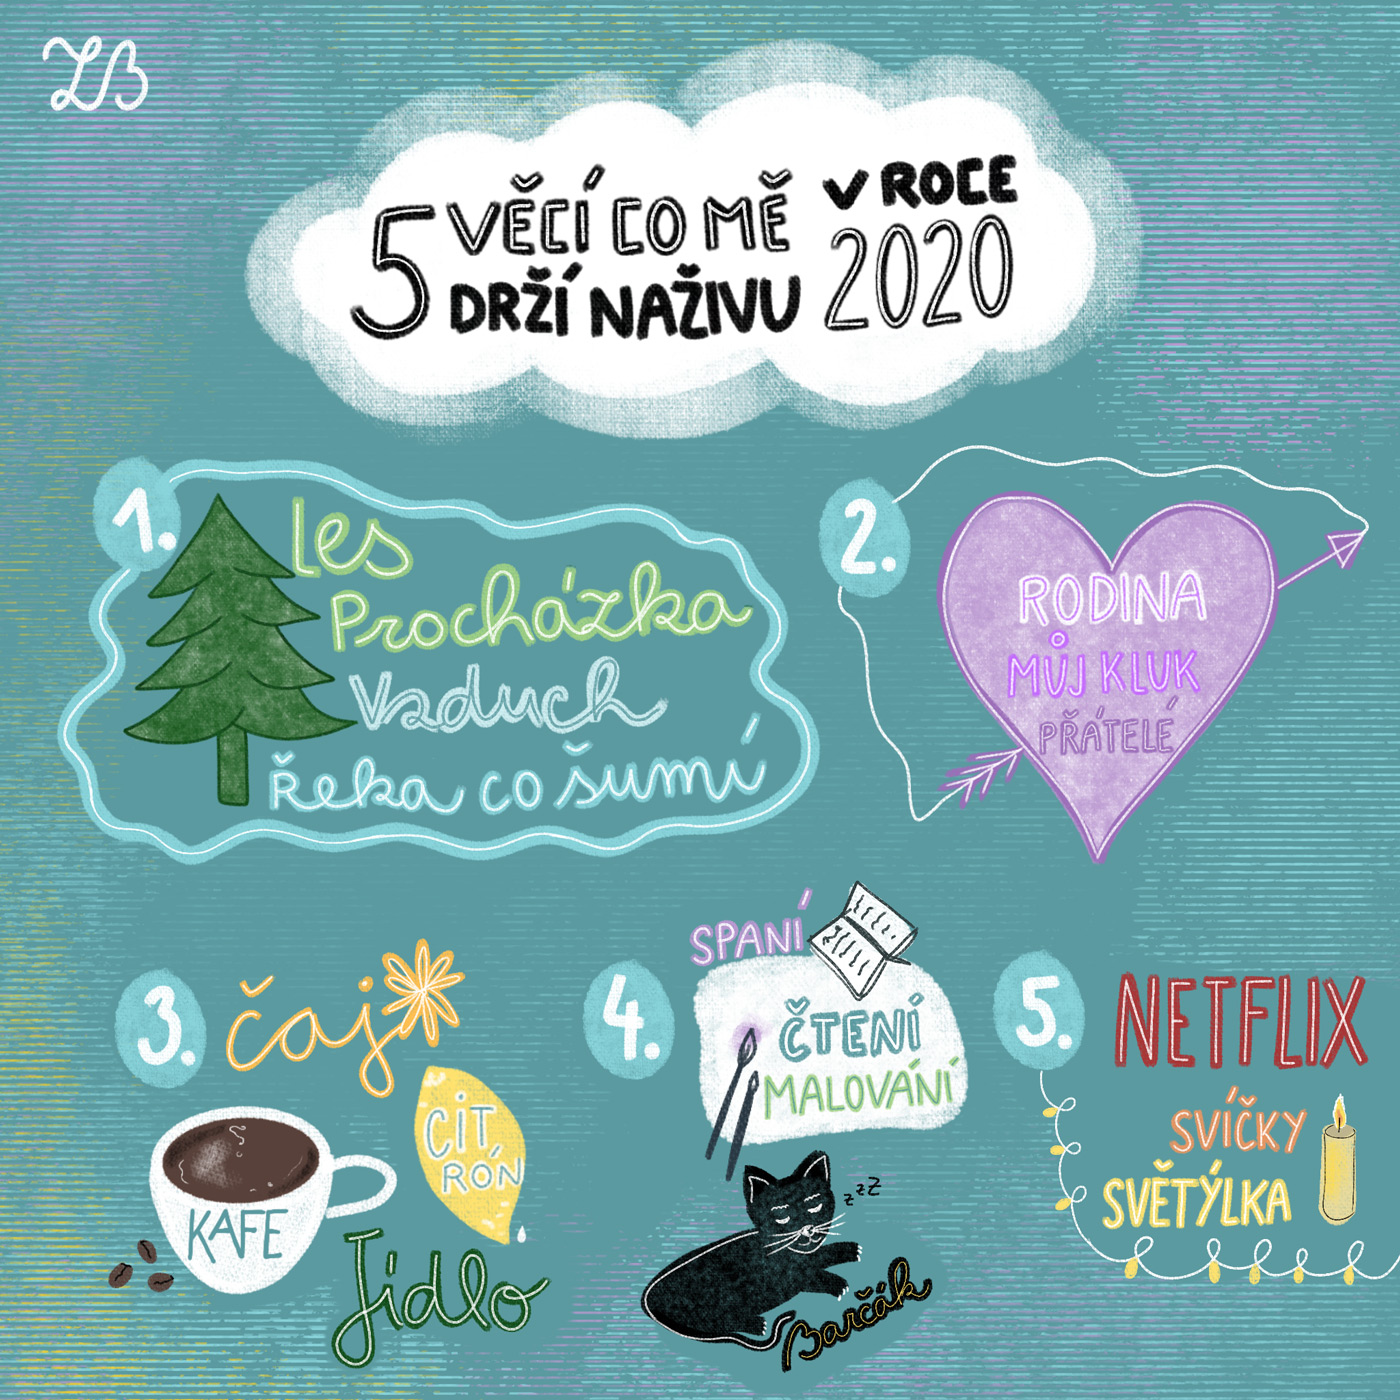 LB
5 VĚCÍ CO MĚ
DRŽÍ NAŽIVU
V ROCE
2020
1.
les
Procházka
Vzduch
Řeka co šumí
2.
RODINA
MŮJ KLUK
PŘÁTELÉ
3.
čaj
CIT
RÓN
KAFE
Jídlo
4.
SPANÍ
ČTENÍ
MALOVÁNÍ
zzZ
Barčák
5.
NETFLIX
SVÍČKY
SVĚTÝLKA